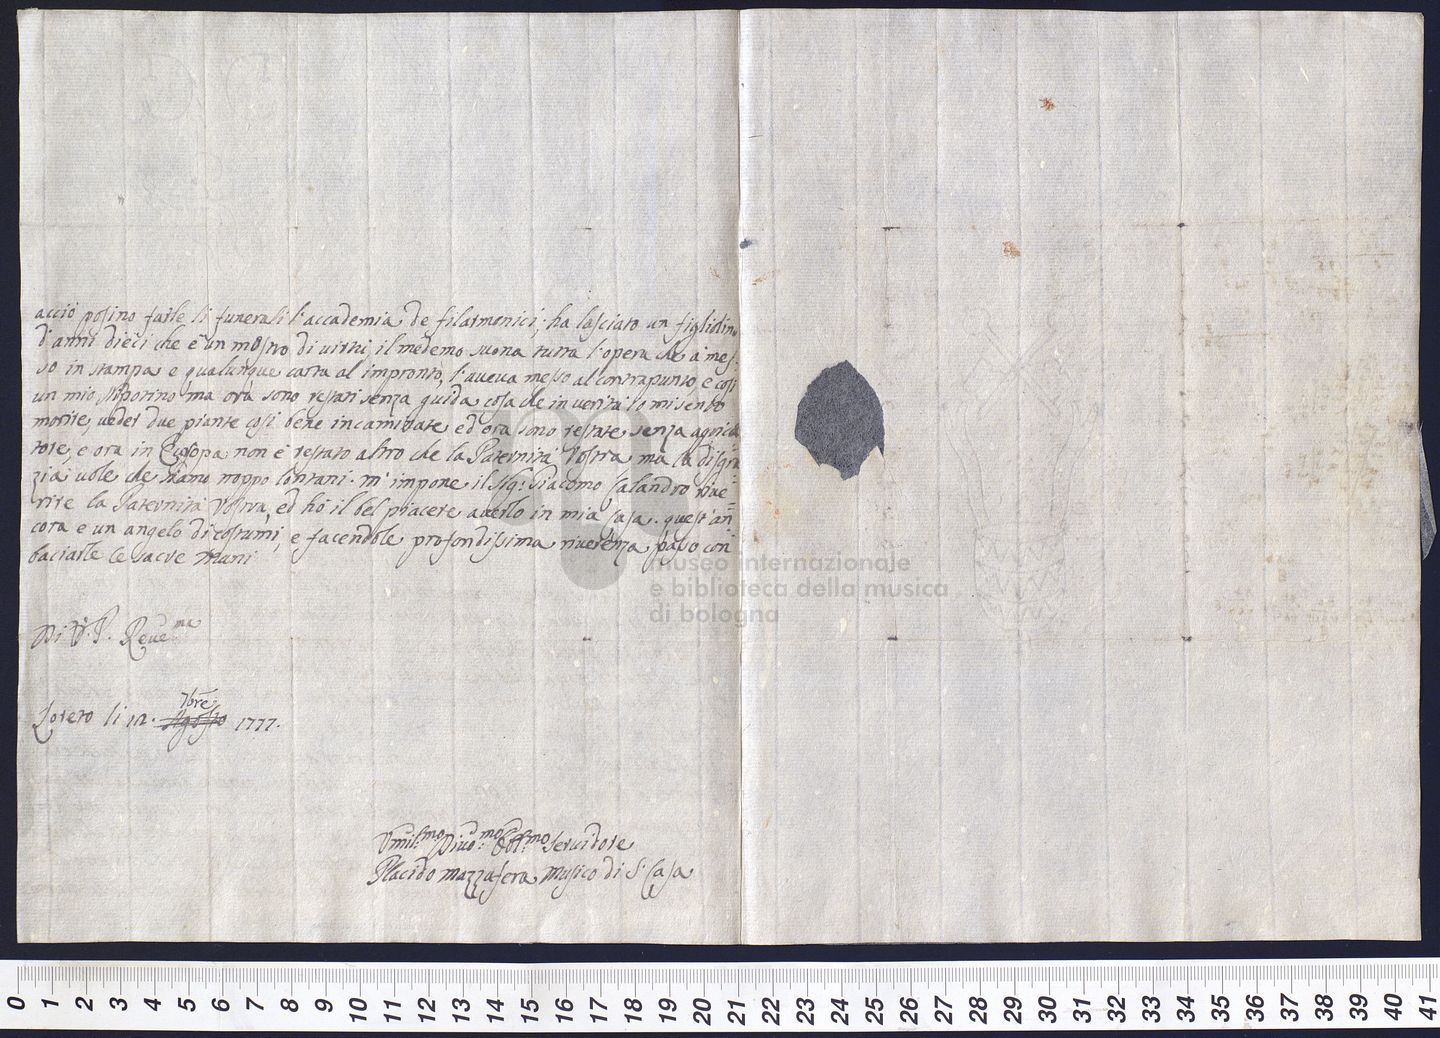 acciò posino farle li funerali l'accademia de filarmonici; ha lasciato un figliolino
d'anni dieci che è un mostro di virtù, il medemo suona tutta l'opera che à mes-
so in stampa e qualunque carta al impronto, l'aveva messo al contrapunto e così
un mio Niporino ma ora sono restati senza guida cosa che in verità io mi sento
morire, veder due piante così bene incaminate ed ora sono restate senza agricol
tore, e ora in Europa non è restato altro che la Paternità Vostra ma la disgra
zia vole che siamo troppo lontani. m'impone il Sig: Giacomo Calandro rive-
rire la Paternità Vostra, ed hò il bel piacere averlo in mia Casa. quest'an
cora è un angelo di costumi, e facendole profondissima riverenza passo con
baciarle le sacre mani
Di V. P. Reve:ma
Loreto li 12. Agosto 7bre 1777.
Umil:mo Divo:mo Obl:mo Servidore
Placido Mazzafera Musico di S. Casa
museo internazionale
e biblioteca della musica
di bologna
0 1 2 3 4 5 6 7 8 9 10 11 12 13 14 15 16 17 18 19 20 21 22 23 24 25 26 27 28 29 30 31 32 33 34 35 36 37 38 39 40 41